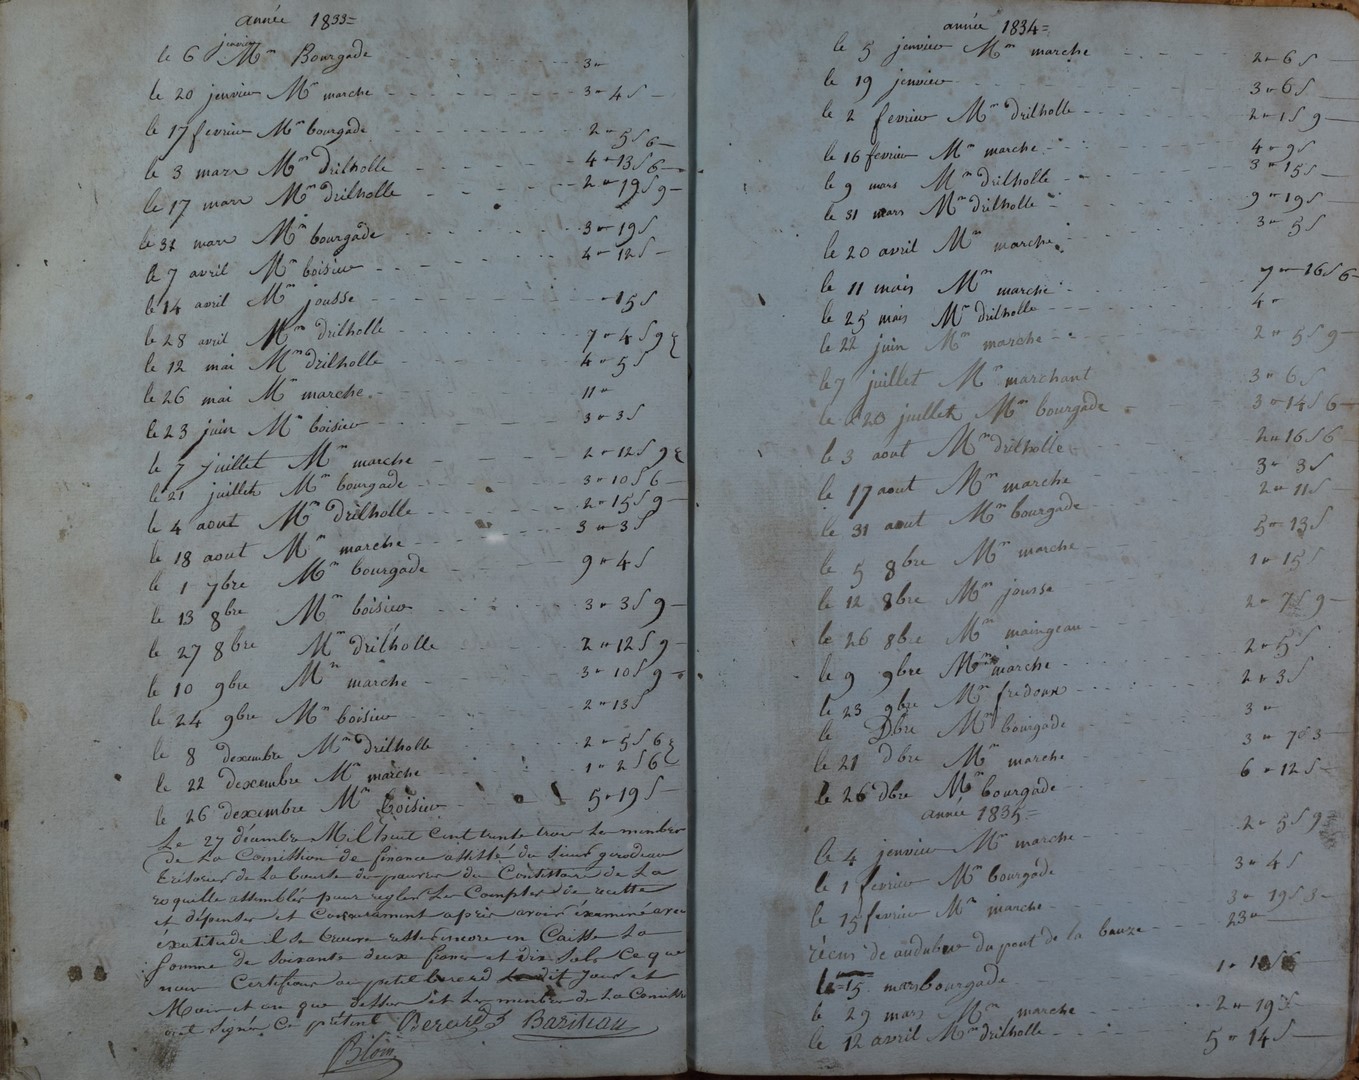 année 1833=
le 6 jenvier Mm Bourgade 3 "
le 20 jenvier Mm marche 3 " 4 S
le 17 fevrier Mm bourgade 2 " 5 S 6
le 3 marr Mm drilholle 4 " 13 S 6
le 17 marr Mm drilholle 2 " 19 S 9
le 31 marr Mm bourgade 3 " 19 S
le 7 avril Mm boisieu 4 " 12 S
le 14 avril Mm jousse " 15 S
le 28 avril Mm drilholle 7 " 4 S 9
le 12 mai Mm drilholle 4 " 5 S
le 26 mai Mm marche 11 "
le 23 juin Mm boisieu 3 " 3 S
le 7 juillet Mm marche 2 " 12 S 9
le 21 juillet Mm bourgade 3 " 10 S 6
le 4 aout Mm drilholle 2 " 15 S 9
le 18 aout Mm marche 3 " 3 S
le 1 7bre Mm bourgade 9 " 4 S
le 13 8bre Mm boisieu 3 " 3 S 9
le 27 8bre Mm drilholle 2 " 12 S 9
le 10 9bre Mm marche 3 " 10 S 9
le 24 9bre Mm boisieu 2 " 13 S
le 8 dexembre Mm drilholle 2 " 5 S 6
le 22 dexembre Mm marche 1 " 2 S 6
le 26 dexembre Mm boisieu 5 " 19 S
Le 27 décembre Mil huit cent trente trois Les membres
de La Comission de finance assisté du Sieur girodeau
trésorier de La bourse des pauvres du Consistoire de La
roquelle assemblés pour regler Les Comptes de recette
et dépenses et Conserament après avoir éxaminé avec
exatitude il se trouve resté encore en Caisse La
Somme de Soixante deux francs et dix Sols Ce que
nous Certifions au petit berard Le dit Jour et
Mois et an que dessus et Les membres de La Comission
ont signés Ce présent Berard Bariteau
Blois
année 1834=
le 5 jenvier Mm marche 2 " 6 S
le 19 jenvier 3 " 6 S
le 2 fevrier Mm drilholle 2 " 1 S 9
le 16 fevrier Mm marche 4 " 9 S
le 9 mars Mm drilholle 3 " 15 S
le 31 mars Mm drilholle 9 " 19 S
le 20 avril Mm marche 3 " 5 S
le 11 mais Mm marche 7 " 16 S 6
le 25 mais Mm drilholle 4 "
le 22 juin Mm marche 2 " 5 S 9
le 7 juillet Mm marchant 3 " 6 S
le 20 juillet Mm bourgade 3 " 14 S 6
le 3 aout Mm drilholle 2 " 16 S 6
le 17 aout Mm marche 3 " 3 S
le 31 aout Mm bourgade 2 " 11 S
le 5 8bre Mm marche 5 " 13 S
le 12 8bre Mm jousse 1 " 15 S
le 26 8bre Mm maingeau 2 " 7 S 9
le 9 9bre Mm marche 2 " 5 S
le 23 9bre Mm fredoux 2 " 3 S
le Dbre Mm bourgade 3 "
le 21 dbre Mm marche 3 " 7 S 3
le 26 dbre Mm bourgade 6 " 12 S
année 1835=
le 4 jenvier Mm marche 2 " 5 S 9
le 1 fevrier Mm bourgade 3 " 4 S
le 15 fevrier Mm marche 3 " 19 S 3
récus de du pont de la bauze 23 "
le 15 mars bourgade 1 "
le 29 mars Mm marche 2 " 19 S
le 12 avril Mm drilholle 5 " 14 S